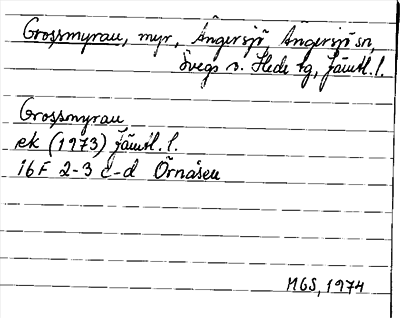 Grossmyran, myr, Ängersjö, Ängersjö sn,
Svegs o. Hede tg, Jämtl. l.
Grossmyran
ek (1973) Jämtl. l.
16F 2-3 c-d Örnåsen
MGS, 1974